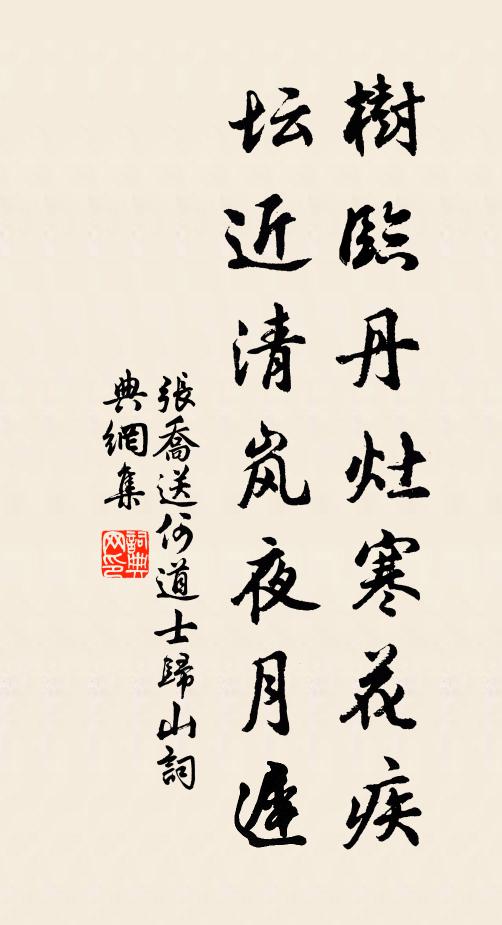 樹臨丹灶寒花疾
坛近清岚夜月遲
張喬送何道士歸山詞
典網集
詞典网印